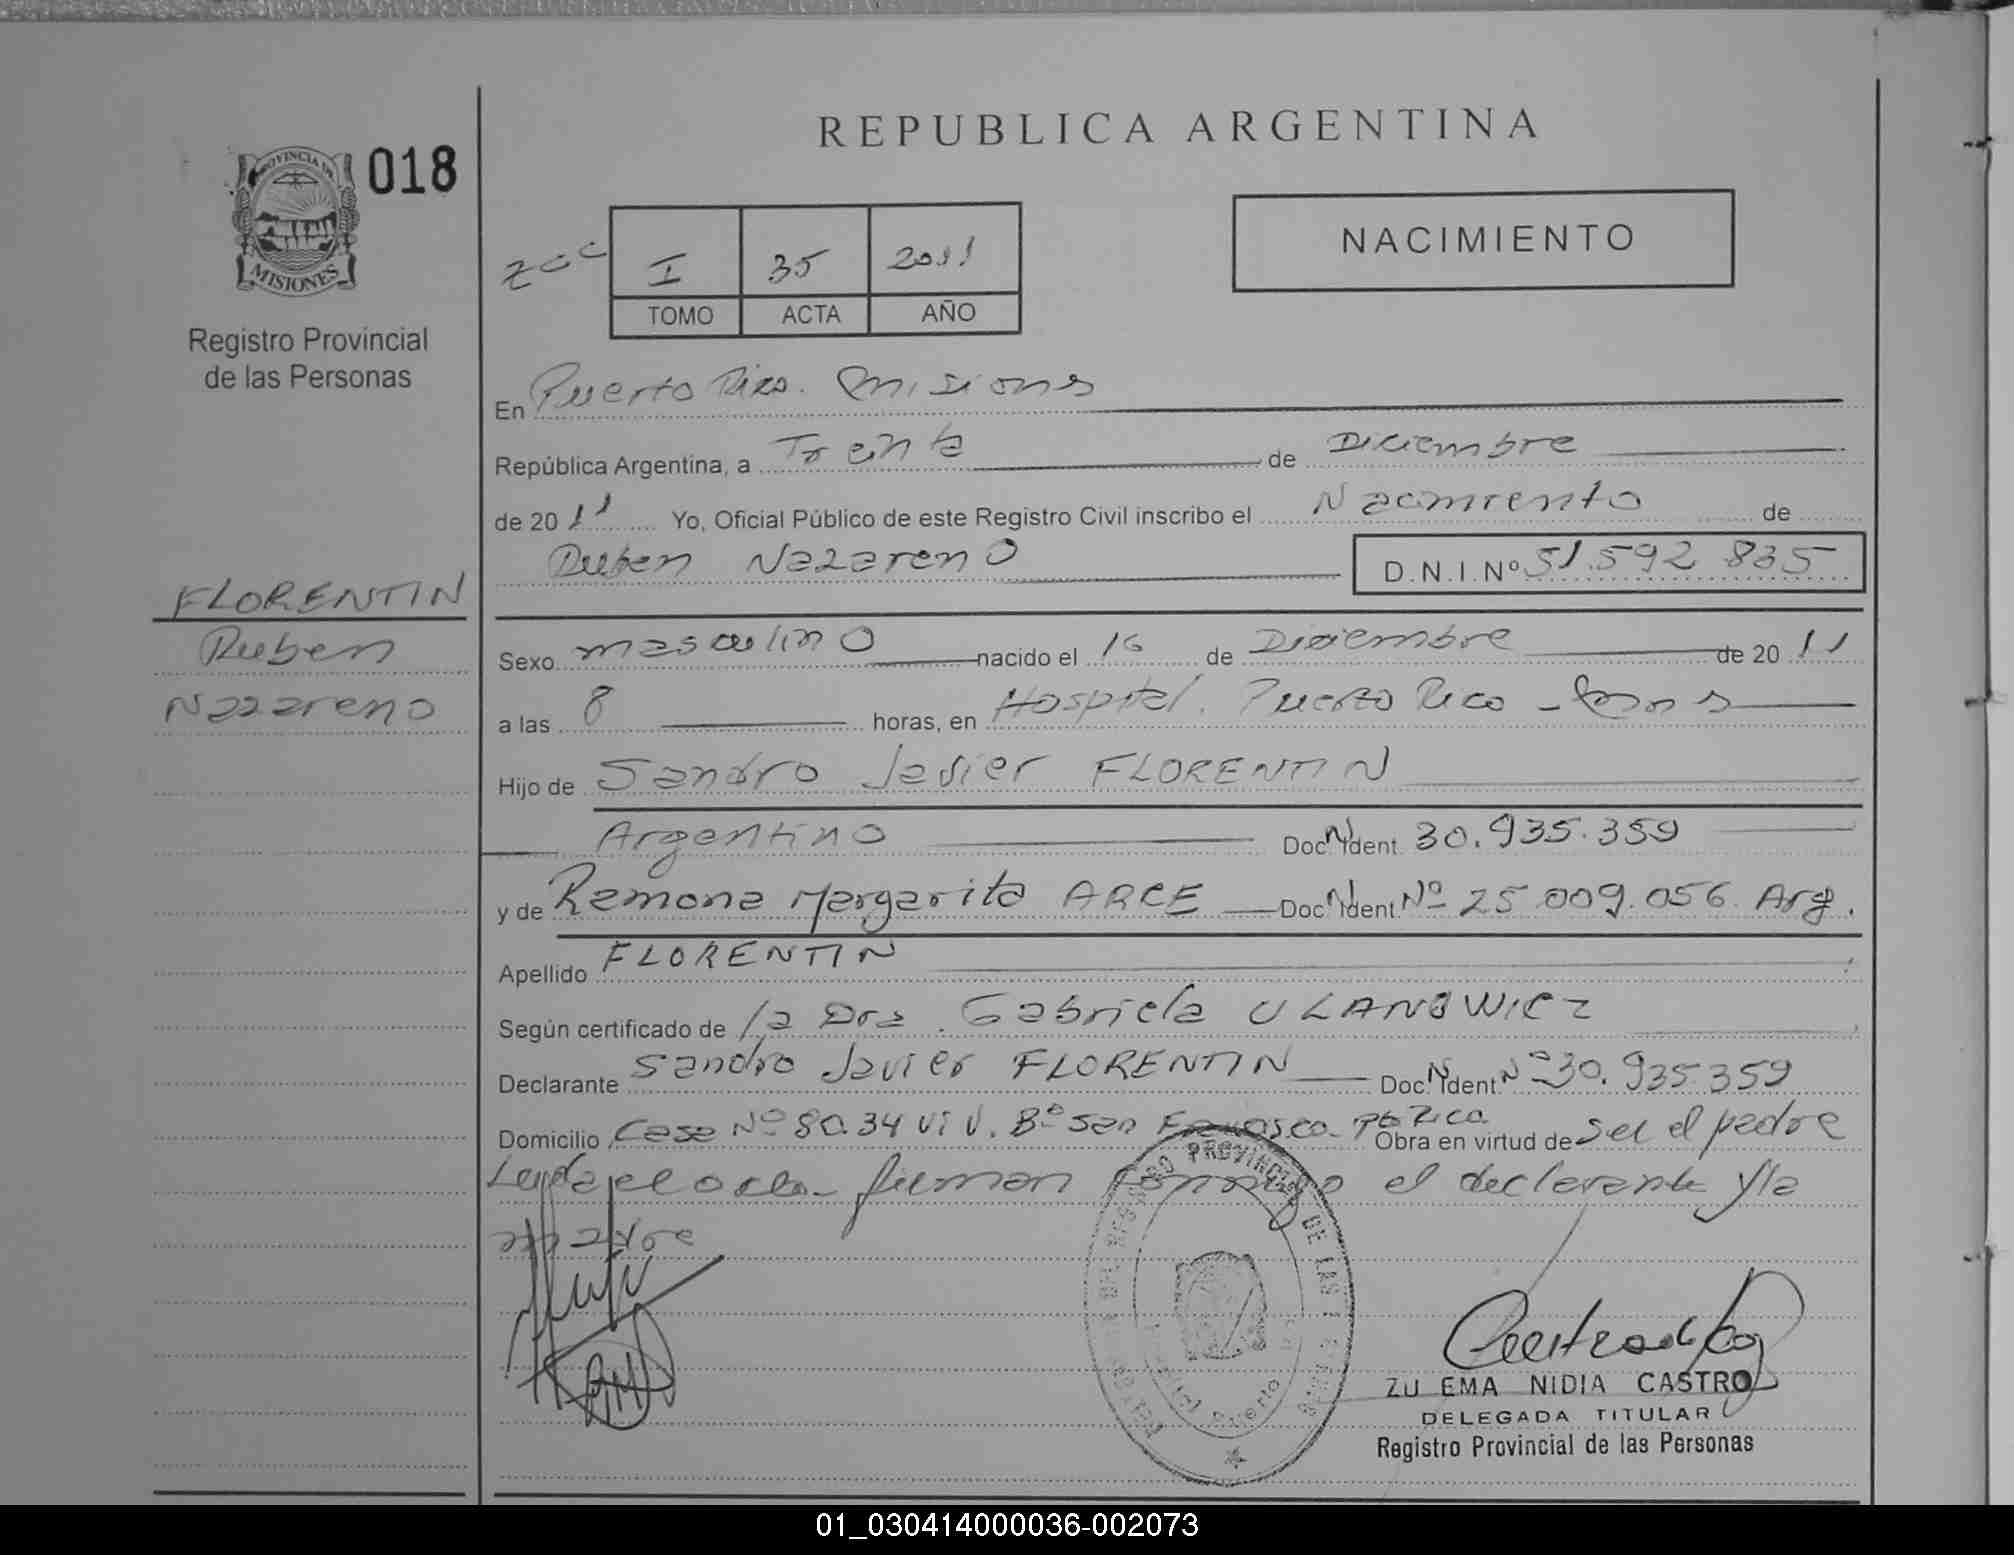 REPUBLICA ARGENTINA
PROVINCIA DE
MISIONES
018
Registro Provincial
de las Personas
NACIMIENTO
I 35 2011
TOMO ACTA AÑO
En Puerto Rico. Misiones
República Argentina, a Trenta de Diciembre
de 2011 Yo, Oficial Público de este Registro Civil inscribo el Nacimiento de
Ruben Nazareno D.N.I.Nº 51.592 835
FLORENTIN
Ruben
Nazareno
Sexo masculino nacido el 16 de Diciembre de 2011
a las 8 horas, en Hospital. Puerto Rico - Mnes
Hijo de Sandro Javier FLORENTIN
Argentino Doc. Ident. 30.935.359
y de Ramona Margarita ARCE Doc. Ident. Nº 25 009.056 Arg.
Apellido FLORENTIN
Según certificado de la Dra. Gabriela ULANOWICZ
Declarante Sandro Javier FLORENTIN Doc. Ident. Nº 30.935.359
Domicilio Casa Nº 80.34 viv. Bº San Francisco. Pto Rico Obra en virtud de ser el padre
Leida el acta firman conmigo el declarante y la
madre
ZU EMA NIDIA CASTRO
DELEGADA TITULAR
Registro Provincial de las Personas
01_030414000036-002073